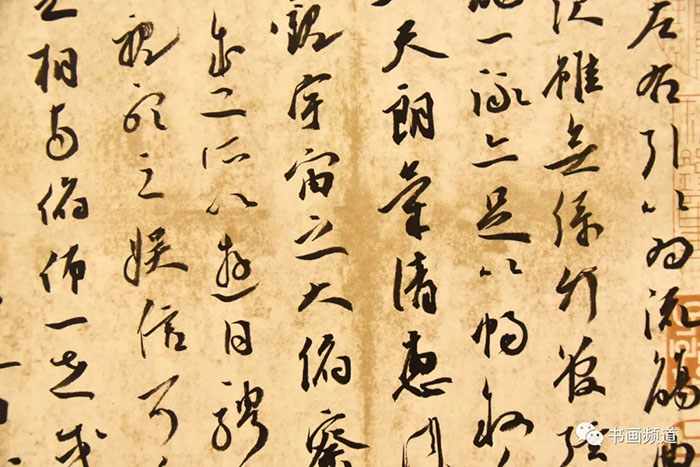 左右引以为流觴曲
次雖無絲竹管弦
一詠亦足以暢敘
天朗氣清惠風
觀宇宙之大俯察
所以遊目騁
視聽之娛信可
之相與俯仰一世或
书画频道